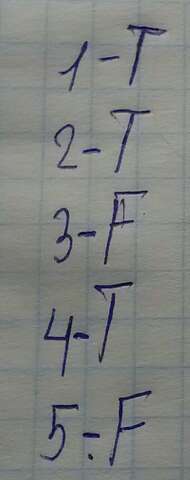 1-T
2-T
3-F
4-T
5-F